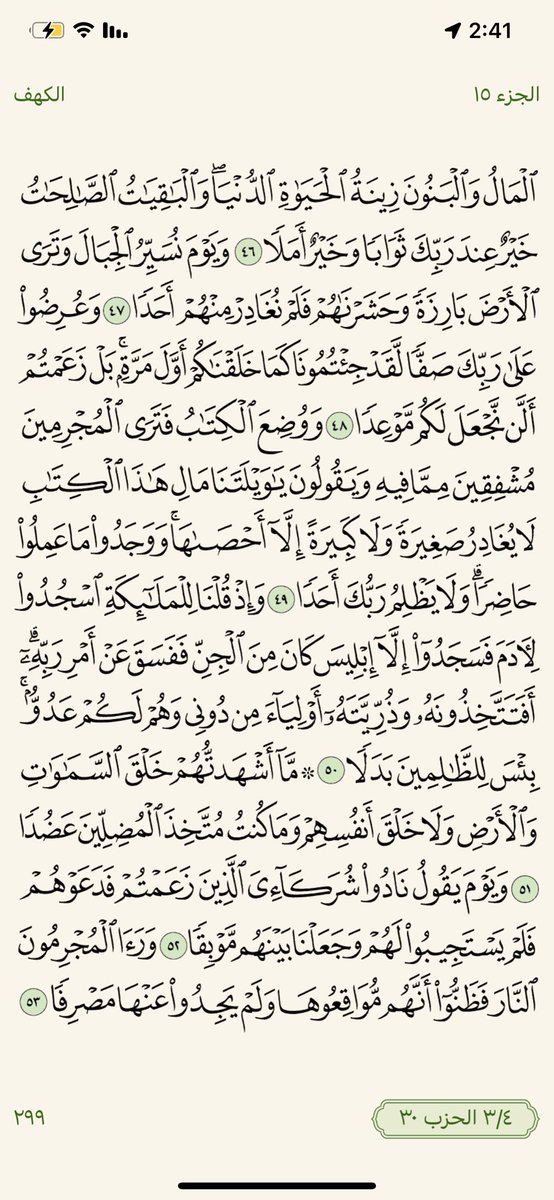 2:41
الجزء ١٥
الكهف
ٱلۡمَالُ وَٱلۡبَنُونَ زِينَةُ ٱلۡحَيَوٰةِ ٱلدُّنۡيَاۖ وَٱلۡبَٰقِيَٰتُ ٱلصَّٰلِحَٰتُ
خَيۡرٌ عِندَ رَبِّكَ ثَوَابٗا وَخَيۡرٌ أَمَلٗا ٤٦ وَيَوۡمَ نُسَيِّرُ ٱلۡجِبَالَ وَتَرَى
ٱلۡأَرۡضَ بَارِزَةٗ وَحَشَرۡنَٰهُمۡ فَلَمۡ نُغَادِرۡ مِنۡهُمۡ أَحَدٗا ٤٧ وَعُرِضُواْ
عَلَىٰ رَبِّكَ صَفّٗا لَّقَدۡ جِئۡتُمُونَا كَمَا خَلَقۡنَٰكُمۡ أَوَّلَ مَرَّةِۭۚ بَلۡ زَعَمۡتُمۡ
أَلَّن نَّجۡعَلَ لَكُم مَّوۡعِدٗا ٤٨ وَوُضِعَ ٱلۡكِتَٰبُ فَتَرَى ٱلۡمُجۡرِمِينَ
مُشۡفِقِينَ مِمَّا فِيهِ وَيَقُولُونَ يَٰوَيۡلَتَنَا مَالِ هَٰذَا ٱلۡكِتَٰبِ
لَا يُغَادِرُ صَغِيرَةٗ وَلَا كَبِيرَةً إِلَّآ أَحۡصَىٰهَاۚ وَوَجَدُواْ مَا عَمِلُواْ
حَاضِرٗاۗ وَلَا يَظۡلِمُ رَبُّكَ أَحَدٗا ٤٩ وَإِذۡ قُلۡنَا لِلۡمَلَٰٓئِكَةِ ٱسۡجُدُواْ
لِأٓدَمَ فَسَجَدُوٓاْ إِلَّآ إِبۡلِيسَ كَانَ مِنَ ٱلۡجِنِّ فَفَسَقَ عَنۡ أَمۡرِ رَبِّهِۦٓۗ
أَفَتَتَّخِذُونَهُۥ وَذُرِّيَّتَهُۥٓ أَوۡلِيَآءَ مِن دُونِي وَهُمۡ لَكُمۡ عَدُوُّۢۚ
بِئۡسَ لِلظَّٰلِمِينَ بَدَلٗا ٥٠ ۞ مَّآ أَشۡهَدتُّهُمۡ خَلۡقَ ٱلسَّمَٰوَٰتِ
وَٱلۡأَرۡضِ وَلَا خَلۡقَ أَنفُسِهِمۡ وَمَا كُنتُ مُتَّخِذَ ٱلۡمُضِلِّينَ عَضُدٗا
٥١ وَيَوۡمَ يَقُولُ نَادُواْ شُرَكَآءِيَ ٱلَّذِينَ زَعَمۡتُمۡ فَدَعَوۡهُمۡ
فَلَمۡ يَسۡتَجِيبُواْ لَهُمۡ وَجَعَلۡنَا بَيۡنَهُم مَّوۡبِقٗا ٥٢ وَرَءَا ٱلۡمُجۡرِمُونَ
ٱلنَّارَ فَظَنُّوٓاْ أَنَّهُم مُّوَاقِعُوهَا وَلَمۡ يَجِدُواْ عَنۡهَا مَصۡرِفٗا ٥٣
٣/٤ الحزب ٣٠
٢٩٩